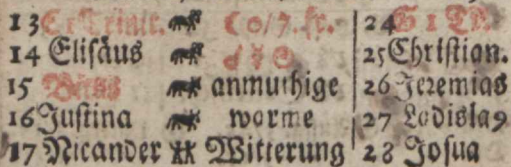 13 E 1 Trinit. ☾ 0/7. fr. 24 G 1 Tr.
14 Elisäus ☌ ☿ ☉ 25 Christian.
15 Vitus anmuthige 26 Jeremias
16 Justina warme 27 Ladisla9
17 Nicander ♊ Witterung 28 Josua